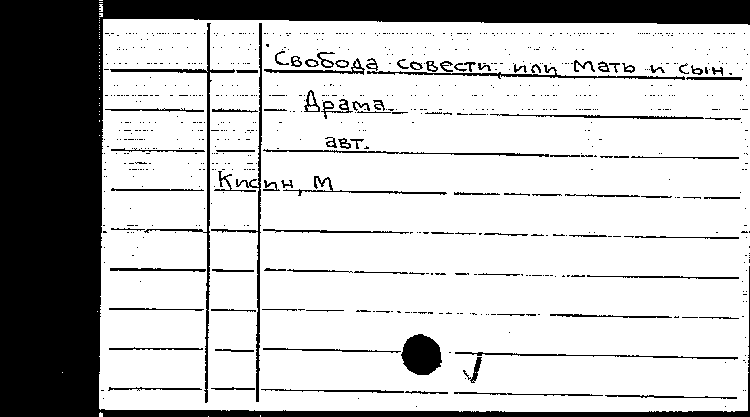 Свобода совести, или Мать и сын.
Драма.
авт.
Кисин, М